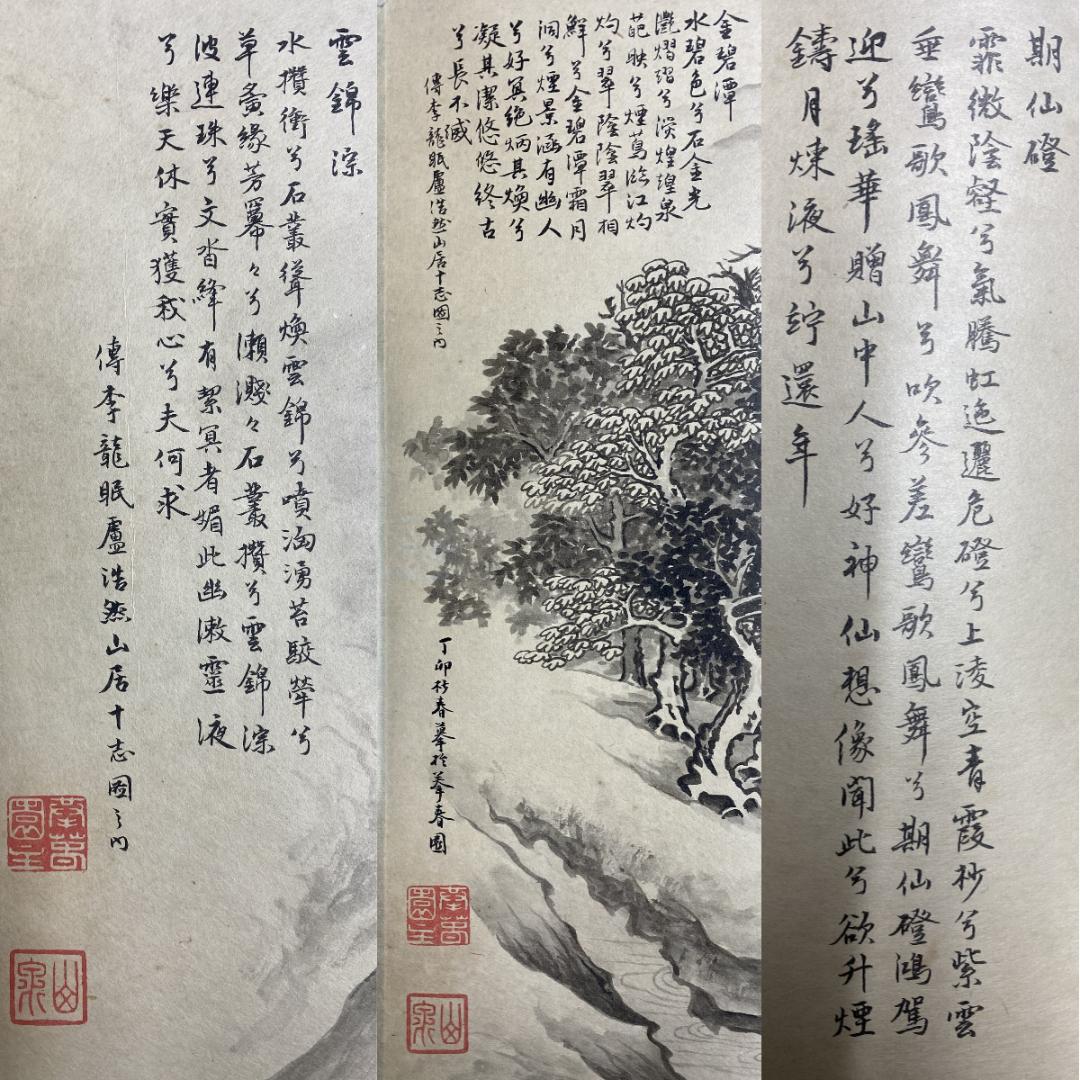 雲錦淙
水攢衝兮石叢聳煥雲錦兮噴洶湧苔駁犖兮
草夤緣芳羃々兮瀨濺々石叢攢兮雲錦淙
波連珠兮文沓縫有絜冥者媚此幽漱靈液
兮樂天休實獲我心兮夫何求
傳李龍眠盧浩然山居十志圖之內
山泉
金碧潭
水碧色兮石金光
灧熠熠兮煌煌泉
葩映兮煙蔦臨江灼
灼兮翠陰陰翠相
鮮兮金碧潭霜月
洞兮煙景涵有幽人
兮好冥絕炳其煥兮
凝其潔悠悠終古
兮長不滅
傳李龍眠盧浩然山居十志圖之內
丁卯杪春摹於摹春園
山泉
期仙磴
霏微陰壑兮氣騰虹迤邐危磴兮上淩空青霞杪兮紫雲
垂鸞歌鳳舞兮吹參差鸞歌鳳舞兮期仙磴鴻駕
迎兮瑤華贈山中人兮好神仙想像聞此兮欲升煙
鑄月煉液兮竚還年